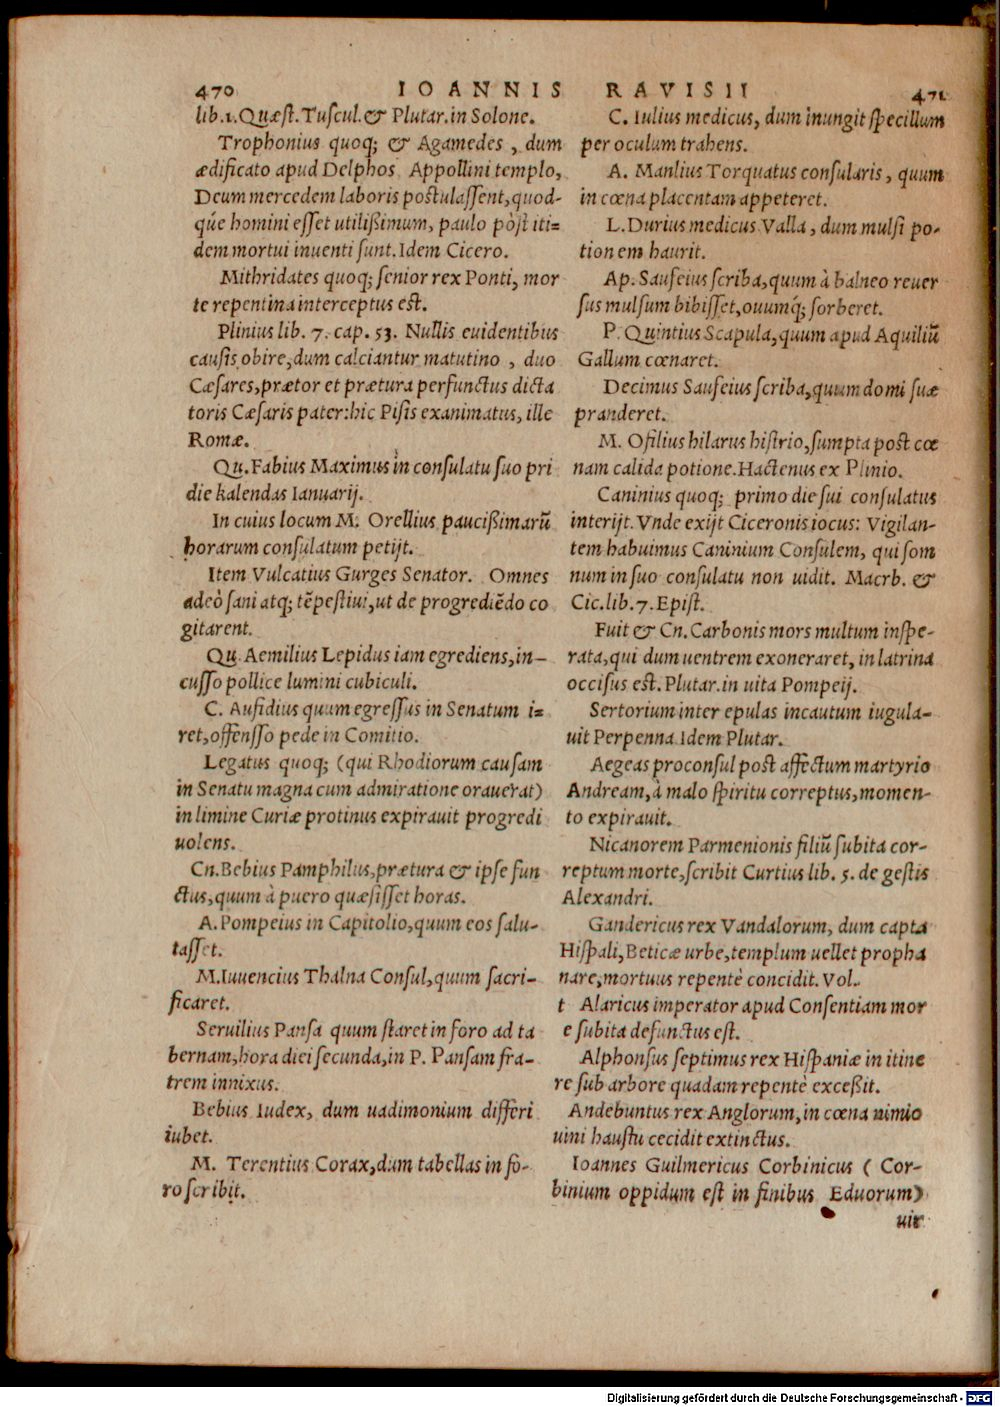 470 IOANNIS RAVISII 471
lib.1.Quæst.Tuscul.& Plutar.in Solone.
Trophonius quoq; & Agamedes, dum
ædificato apud Delphos Appollini templo,
Deum mercedem laboris postulassent,quod-
q́ue homini esset utilißimum, paulo pòst iti=
dem mortui inuenti sunt.Idem Cicero.
Mithridates quoq; senior rex Ponti, mor
te repentina interceptus est.
Plinius lib. 7. cap. 53. Nullis euidentibus
causis obire,dum calciantur matutino, duo
Cæsares,prætor et prætura perfunctus dicta
toris Cæsaris pater:hic Pisis exanimatus, ille
Romæ.
Qu.Fabius Maximus in consulatu suo pri
die kalendas Ianuarij.
In cuius locum M. Orellius paucißimarũ
horarum consulatum petijt.
Item Vulcatius Gurges Senator. Omnes
adeò sani atq; tẽpestiui,ut de progrediẽdo co
gitarent.
Qu.Aemilius Lepidus iam egrediens,in-
cusso pollice lumini cubiculi.
C. Aufidius quum egressus in Senatum i=
ret,offensso pede in Comitio.
Legatus quoq; (qui Rhodiorum causam
in Senatu magna cum admiratione orauerat)
in limine Curiæ protinus expirauit progredi
uolens.
Cn.Bebius Pamphilus,prætura & ipse fun
ctus,quum à puero quæsisset horas.
A.Pompeius in Capitolio,quum eos salu-
tasset.
M.Iuuencius Thalna Consul,quum sacri-
ficaret.
Seruilius Pansa quum staret in foro ad ta
bernam,hora diei secunda,in P. Pansam fra-
trem innixus.
Bebius Iudex, dum uadimonium differi
iubet.
M. Terentius Corax,dum tabellas in fo-
ro scribit.
C. Iulius medicus, dum inungit specillum
per oculum trahens.
A. Manlius Torquatus consularis, quum
in cœna placentam appeteret.
L.Durius medicus Valla, dum mulsi po-
tionem haurit.
Ap. Saufeius scriba,quum à balneo reuer
sus mulsum bibisset,ouumq́; sorberet.
P. Quintius Scapula,quum apud Aquiliũ
Gallum cœnaret.
Decimus Saufeius scriba,quum domi suæ
pranderet.
M. Ofilius hilarus histrio,sumpta post cœ
nam calida potione.Hactenus ex Plinio.
Caninius quoq; primo die sui consulatus
interijt.Vnde exijt Ciceronis iocus: Vigilan-
tem habuimus Caninium Consulem, qui som
num in suo consulatu non uidit. Macrb. &
Cic.lib.7.Epist.
Fuit & Cn.Carbonis mors multum inspe-
rata,qui dum uentrem exoneraret, in latrina
occisus est.Plutar.in uita Pompeij.
Sertorium inter epulas incautum iugula-
uit Perpenna.Idem Plutar.
Aegeas proconsul post affectum martyrio
Andream,à malo spiritu correptus,momen-
to expirauit.
Nicanorem Parmenionis filiũ subita cor-
reptum morte,scribit Curtius lib. 5. de gestis
Alexandri.
Gandericus rex Vandalorum, dum capta
Hispali,Beticæ urbe,templum uellet propha
nare,mortuus repentè concidit.Vol.
t Alaricus imperator apud Consentiam mor
e subita defunctus est.
Alphonsus septimus rex Hispaniæ in itine
re sub arbore quadam repentè exceßit.
Andebuntus rex Anglorum,in cœna nimio
uini haustu cecidit extinctus.
Ioannes Guilmericus Corbinicus ( Cor-
binium oppidum est in finibus Eduorum)
uir
Digitalisierung gefördert durch die Deutsche Forschungsgemeinschaft - DFG